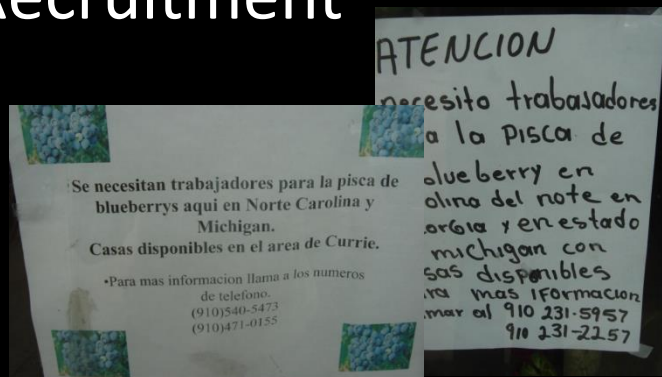 Recruitment
Se necesitan trabajadores para la pisca de
blueberrys aqui en Norte Carolina y
Michigan.
Casas disponibles en el area de Currie.
•Para mas informacion llama a los numeros
de telefono.
(910)540-5473
(910)471-0155
ATENCION
necesito trabajadores
a la pisca de
blueberry en
olina del note en
orgia y en estado
michigan con
sas disponibles
ra mas iformacion
mar al 910 231-5957
910 231-2257